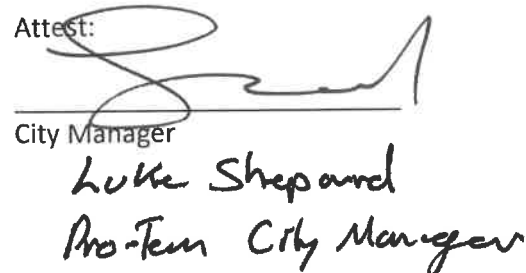 Attest:
City Manager
Luke Shepard
Pro-Tem City Manager